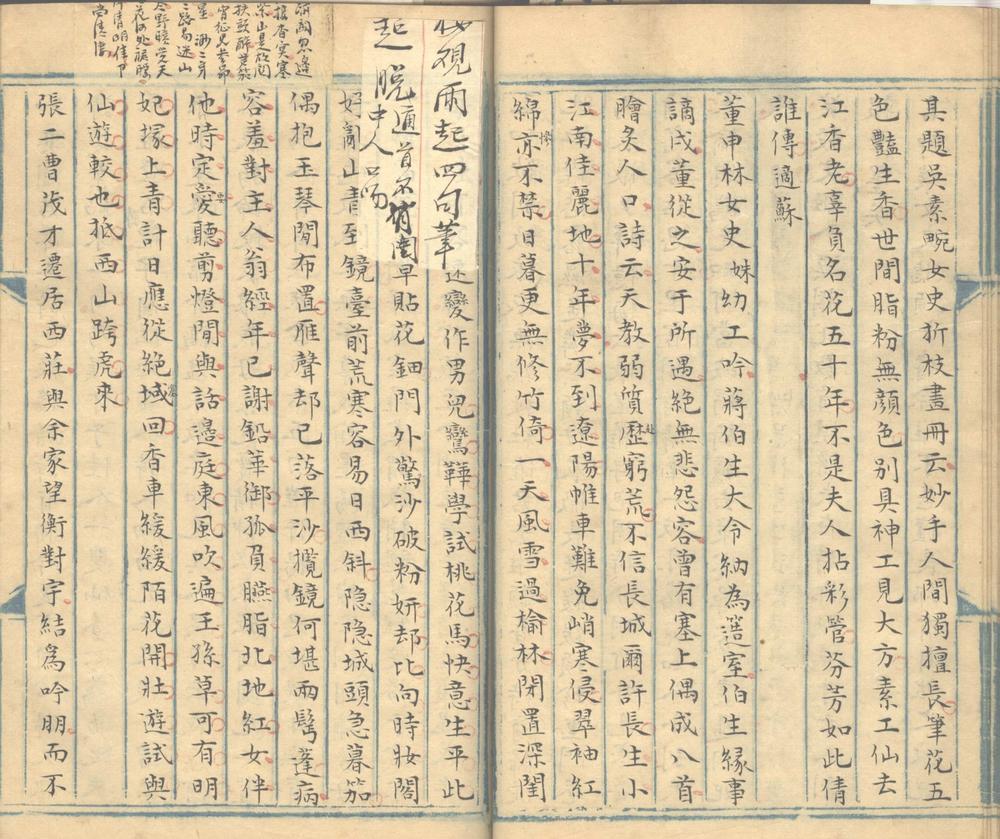 其題吳素畹女史折枝畫冊云妙手人間獨擅長筆花五
色豔生香世間脂粉無顏色別具神工見大方素工仙去
江香老辜負名花五十年不是夫人拈彩管芬芳如此倩
誰傳適蘇
董申林女史姝幼工吟蔣伯生大令納為簉室伯生緣事
謫戍董從之安于所遇絕無悲怨容曾有塞上偶成八首
膾炙人口詩云天教弱質歷窮荒不信長城爾許長生小
江南佳麗地十年夢不到遼陽帷車難免峭寒侵翠袖紅
綿亦不禁日暮更無修竹倚一天風雪過榆林閉置深閨
起四句筆
述變作男兒鸞鞾學試桃花馬快意生平此
起 脫
早貼花鈿門外驚沙破粉妍却比向時妝閣
好 山青到鏡臺前荒寒容易日西斜隐隐城頭急暮笳
偶抱玉琴閒布置雁聲却已落平沙攬鏡何堪兩鬢蓬病
容羞對主人翁經年已謝鉛華御孤負臙脂北地紅女伴
他時定愛聽剪燈閒與話邊庭東風吹遍王孫草可有明
妃塚上青計日應從絕域回香車緩緩陌花開壯遊試與
仙遊較也抵西山跨虎來
張二曹茂才遷居西莊與余家望衡對宇結為吟朋而不